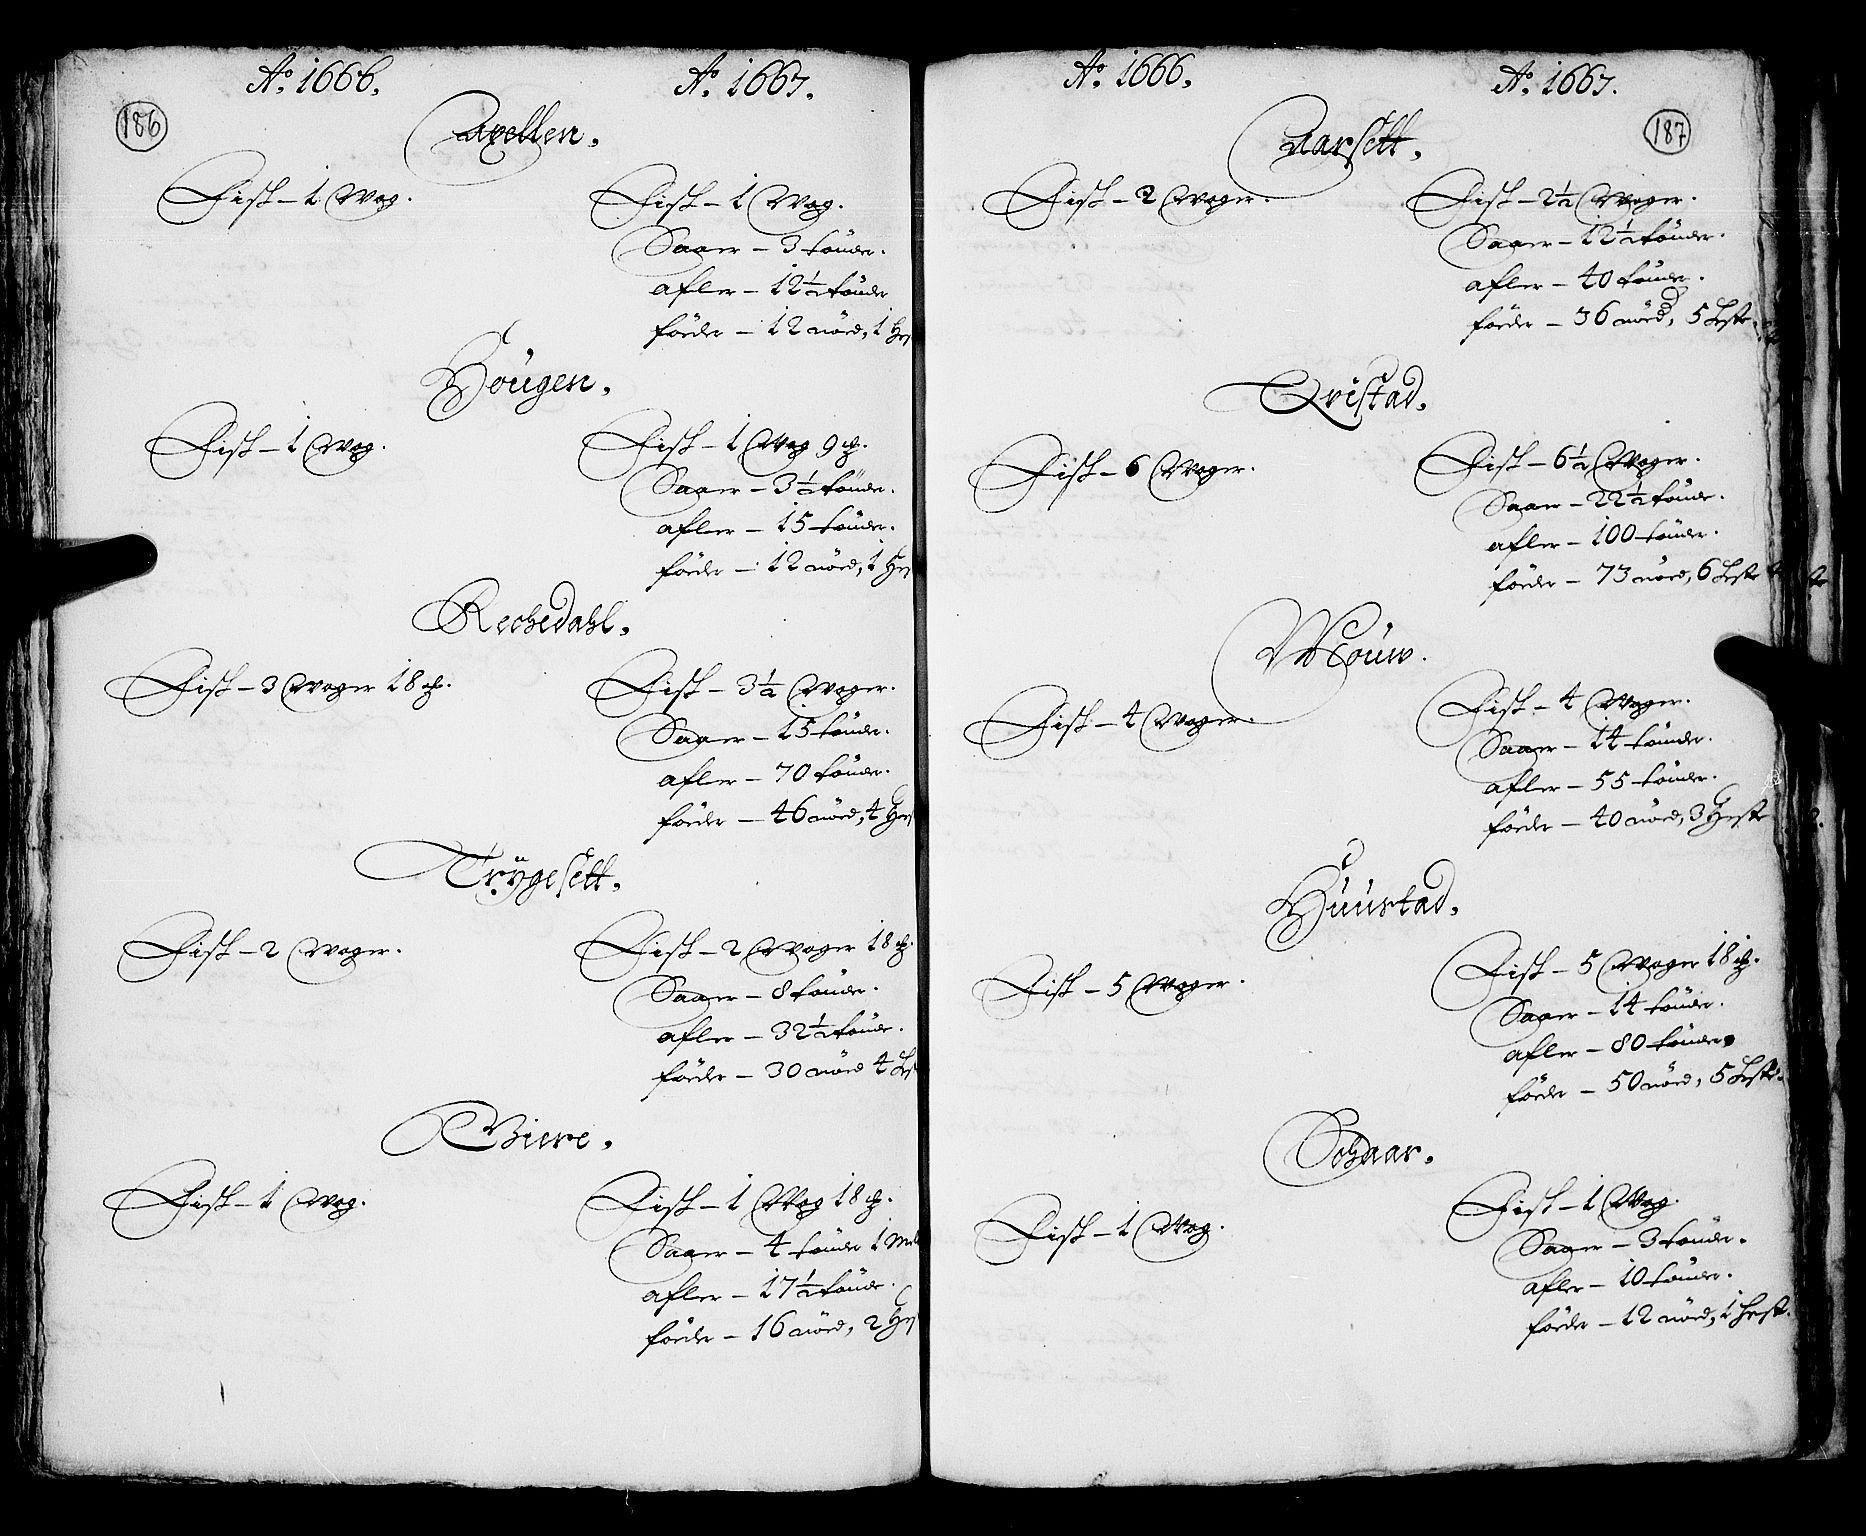 186
Ao. 1666.
Ao. 1667.
Axellen.
Fisk - 1 Wog.
Fisk - 1 Wog.
Saaer - 3 tönder.
afler - 12½ tönder
föeder - 12 nöed, 1
Höugen.
Fisk - 1 Wog.
Fisk - 1 Wog 9 ℔.
Saaer - 3½ tönder.
afler - 15 tönder.
föeder - 12 nöed, 1
Rechedahl.
Fisk - 3 Woger 18 ℔.
Fisk - 3½ Woger.
Saaer - 15 tönder.
afler - 70 tönder.
föeder - 46 nöed, 4
Trÿgesett.
Fisk - 2 Woger.
Fisk - 2 Woger 18 ℔.
Saaer - 8 tönder.
afler - 32½ tönder.
föeder - 30 nöed 4
Bierre.
Fisk - 1 Wog.
Fisk - 1 Wog 18 ℔.
Saaer - 4 tönder 1
afler - 17½ tönder.
föeder - 16 nöed, 2
187
Ao. 1666.
Ao. 1667.
Aarsett.
Fisk - 2 Woger.
Fisk - 2½ Woger.
Saaer - 12½ tönder.
afler - 40 tönder.
föeder - 36 nöed, 5 Heste.
Qvistad.
Fisk - 6 Woger.
Fisk - 6½ Woger.
Saaer - 22½ tönder.
afler - 100 tönder.
föeder - 73 nöed, 6 Heste
Moüw.
Fisk - 4 Woger.
Fisk - 4 Woger.
Saaer - 14 tönder.
afler - 55 tönder.
föeder - 40 nöed, 3 Heste
Hüustad.
Fisk - 5 Woger.
Fisk - 5 Woger 18 ℔.
Saaer - 14 tönder.
afler - 80 tönder.
föeder - 50 nöed, 5 Heste.
Schaar.
Fisk - 1 Wog.
Fisk - 1 Wog
Saaer - 3 tönder.
afler - 10 tönder.
föeder - 12 nöed, 1 hest.